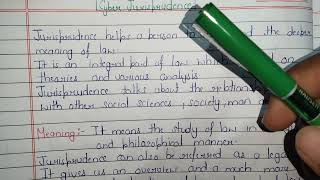 Cyber Jurisprudence
Jurisprudence helps a person the deeper
meaning of law
It is an integral part of law which
theories and various analysis
Jurisprudence talks about the relation
with other social sciences, society, man
Meaning:- It means the study of law in
and philosophical manner
Jurisprudence can also be referred as a lega
It gives us an overview and a much more